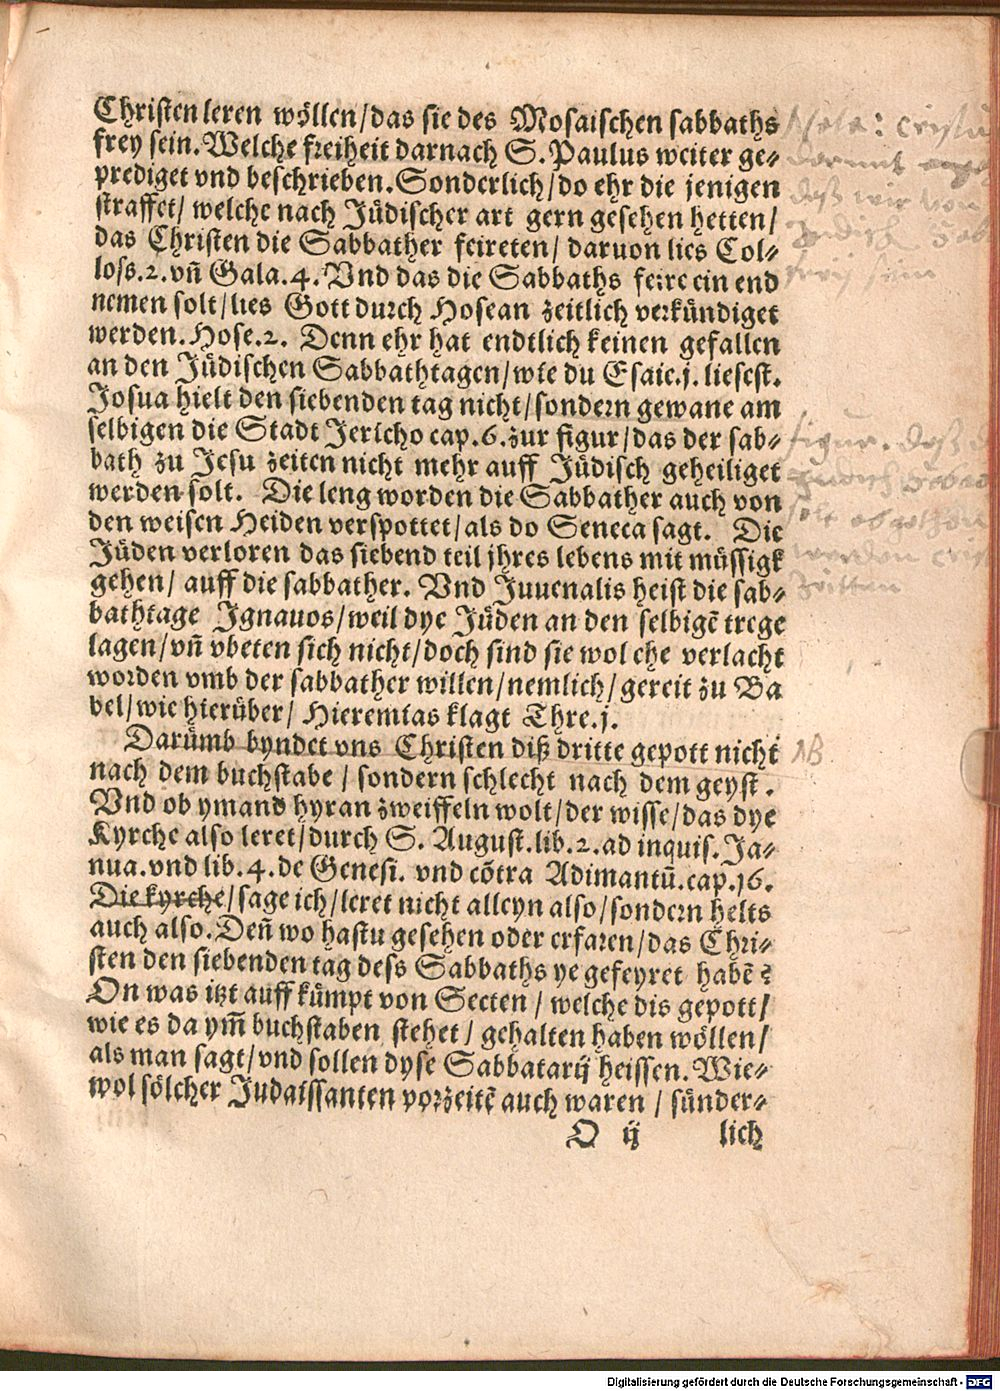 Christen leren wöllen/das sie des Mosaischen sabbaths
frey sein. Welche freiheit darnach S. Paulus weiter ge⸗
prediget vnd beschrieben. Sonderlich/do ehr die jenigen
straffet/ welche nach Jüdischer art gern gesehen hetten/
das Christen die Sabbather feireten/ daruon lies Col⸗
loss.2. vñ Gala.4. Vnd das die Sabbaths feire ein end
nemen solt/lies Gott durch Hosean zeitlich verkündiget
werden. Hose.2. Denn ehr hat endtlich keinen gefallen
an den Jüdischen Sabbathtagen/wie du Esaie.j. liesest.
Josua hielt den siebenden tag nicht/sondern gewane am
selbigen die Stadt Jericho cap.6. zur figur/das der sab⸗
bath zu Jesu zeiten nicht mehr auff Jüdisch geheiliget
werden solt. Die leng worden die Sabbather auch von
den weisen Heiden verspottet/als do Seneca sagt. Die
Jüden verloren das siebend teil jhres lebens mit müssigk
gehen/ auff die sabbather. Vnd Juuenalis heist die sab⸗
bathtage Jgnauos/weil dye Jüden an den selbigē trege
lagen/vñ vbeten sich nicht/doch sind sie wol ehe verlacht
worden vmb der sabbather willen/nemlich/gereit zu Ba
bel/wie hierüber/ Hieremias klagt Thre.j.
Darümb byndet vns Christen diß dritte gepott nicht
nach dem buchstabe / sondern schlecht nach dem geyst.
Vnd ob ymand hyran zweiffeln wolt/der wisse/das dye
Kyrche also leret/durch S. August. lib.2. ad inquis. Ja⸗
nua. vnd lib.4. de Genesi. vnd cōtra Adimantū. cap.16.
Die kyrche/sage ich/leret nicht alleyn also/sondern helts
auch also. Deñ wo hastu gesehen oder erfaren/das Chri⸗
sten den siebenden tag dess Sabbaths ye gefeyret habē?
On was itzt auff kümpt von Secten / welche dis gepott/
wie es da ym̄ buchstaben stehet/ gehalten haben wöllen/
als man sagt/vnd sollen dyse Sabbatarij heissen. Wie⸗
wol sölcher Judaissanten vorzeitē auch waren / sünder⸗
O ij lich
daß wir von
figur. daß
werden
Zeitten
NB
Digitalisierung gefördert durch die Deutsche Forschungsgemeinschaft - DFG